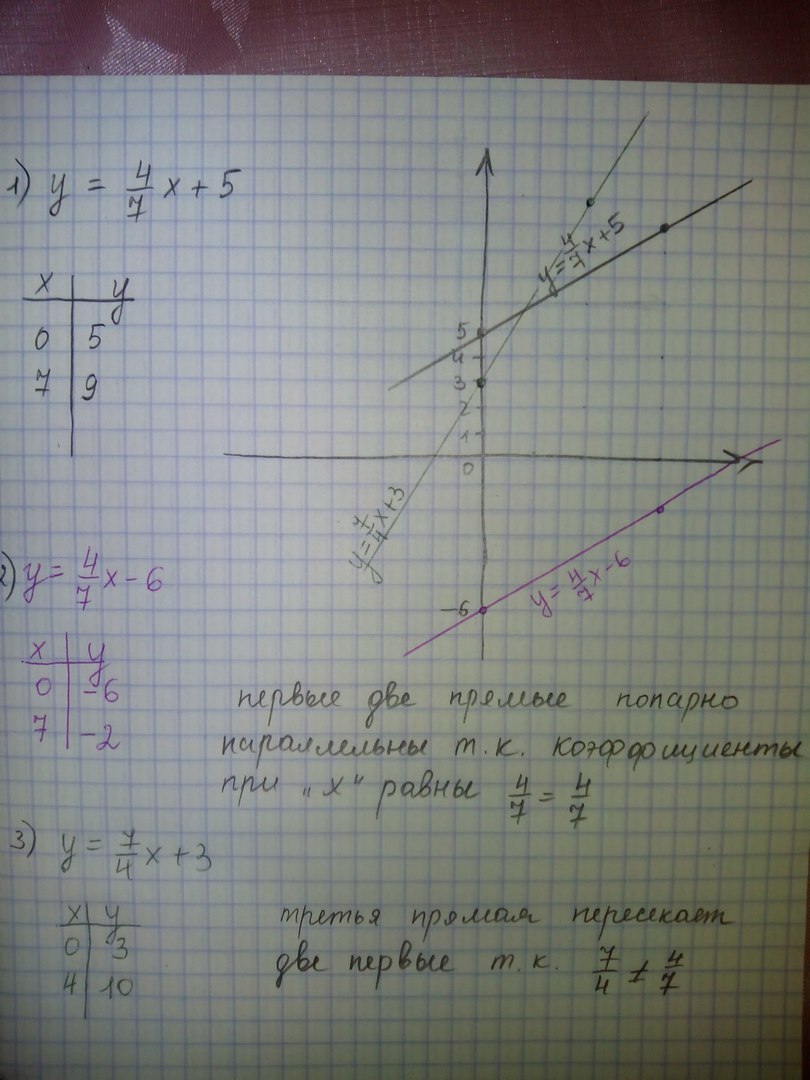 1) y = 4/7 x + 5
x y
0 5
7 9
y = 4/7 x + 5
5
4
3
2
1
0
y = 7/4 x + 3
-6
y = 4/7 x - 6
2) y = 4/7 x - 6
x y
0 -6
7 -2
первые две прямые попарно
параллельны т.к. коэффициенты
при „х" равны 4/7 = 4/7
3) y = 7/4 x + 3
x y
0 3
4 10
третья прямая пересекает
две первые т.к. 7/4 ≠ 4/7